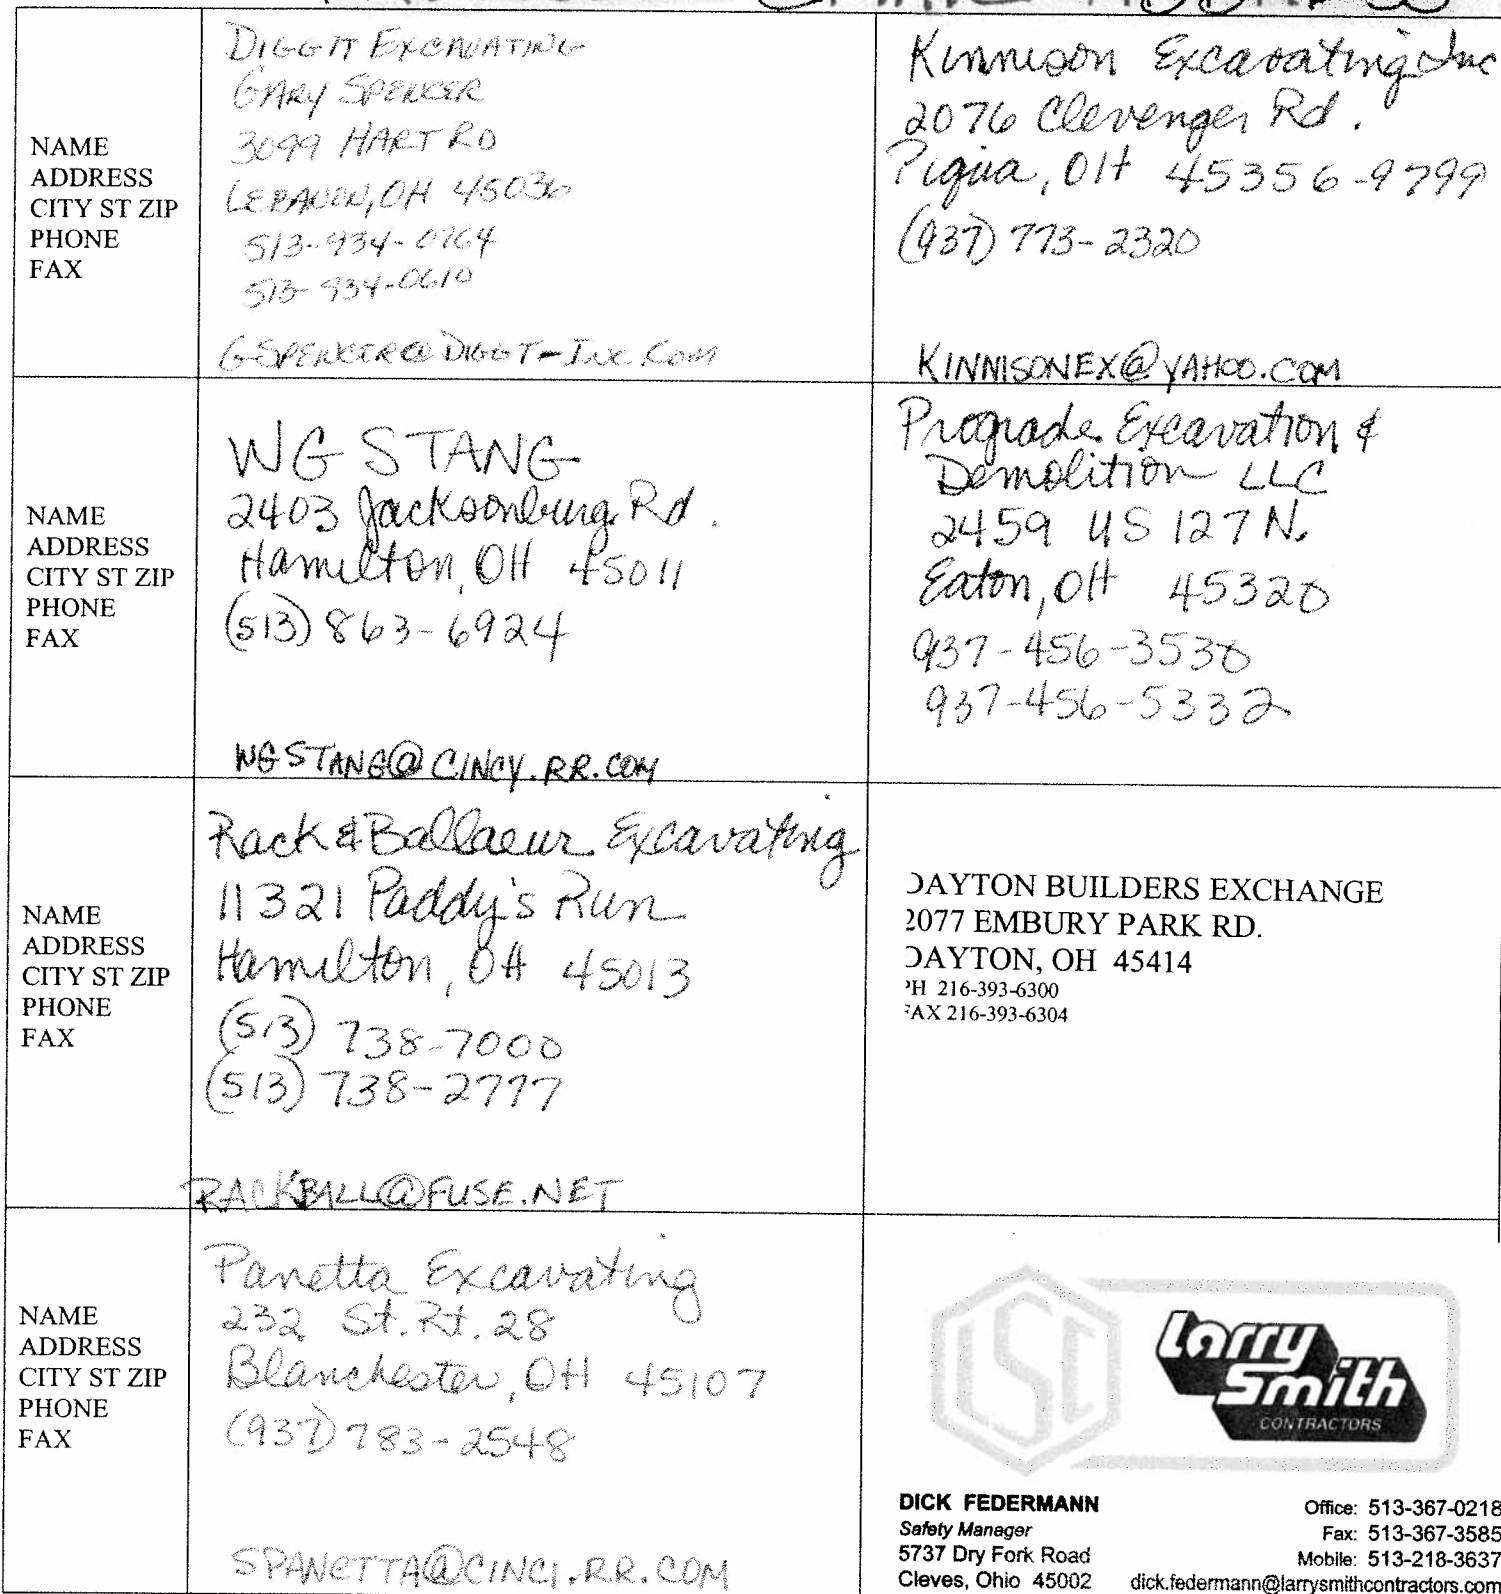 NAME
ADDRESS
CITY ST ZIP
PHONE
FAX
DIGGIT EXCAVATING
GARY SPENCER
3099 HART RD
LEBANON, OH 45036
513-934-0764
513-934-0610
GSPENCER@DIGGT-INC.COM
Kinnison Excavating Inc
2076 Clevenger Rd.
Piqua, OH 45356-9799
(937) 773-2320
KINNISONEX@YAHOO.COM
NAME
ADDRESS
CITY ST ZIP
PHONE
FAX
WG STANG
2403 Jacksonburg Rd.
Hamilton, OH 45011
(513) 863-6924
WGSTANG@CINCY.RR.COM
Prograde Excavation &
Demolition LLC
2459 US 127 N.
Eaton, OH 45320
937-456-3530
937-456-5332
NAME
ADDRESS
CITY ST ZIP
PHONE
FAX
Rack & Ballaeur Excavating
11321 Paddy's Run
Hamilton, OH 45013
(513) 738-7000
(513) 738-2777
RACKBALL@FUSE.NET
DAYTON BUILDERS EXCHANGE
2077 EMBURY PARK RD.
DAYTON, OH 45414
PH 216-393-6300
FAX 216-393-6304
NAME
ADDRESS
CITY ST ZIP
PHONE
FAX
Panetta Excavating
232 St. Rt. 28
Blanchester, OH 45107
(937) 783-2548
SPANETTA@CINCI.RR.COM
LSC
Larry
Smith
CONTRACTORS
DICK FEDERMANN
Safety Manager
5737 Dry Fork Road
Cleves, Ohio 45002
Office: 513-367-0218
Fax: 513-367-3585
Mobile: 513-218-3637
dick.federmann@larrysmithcontractors.com